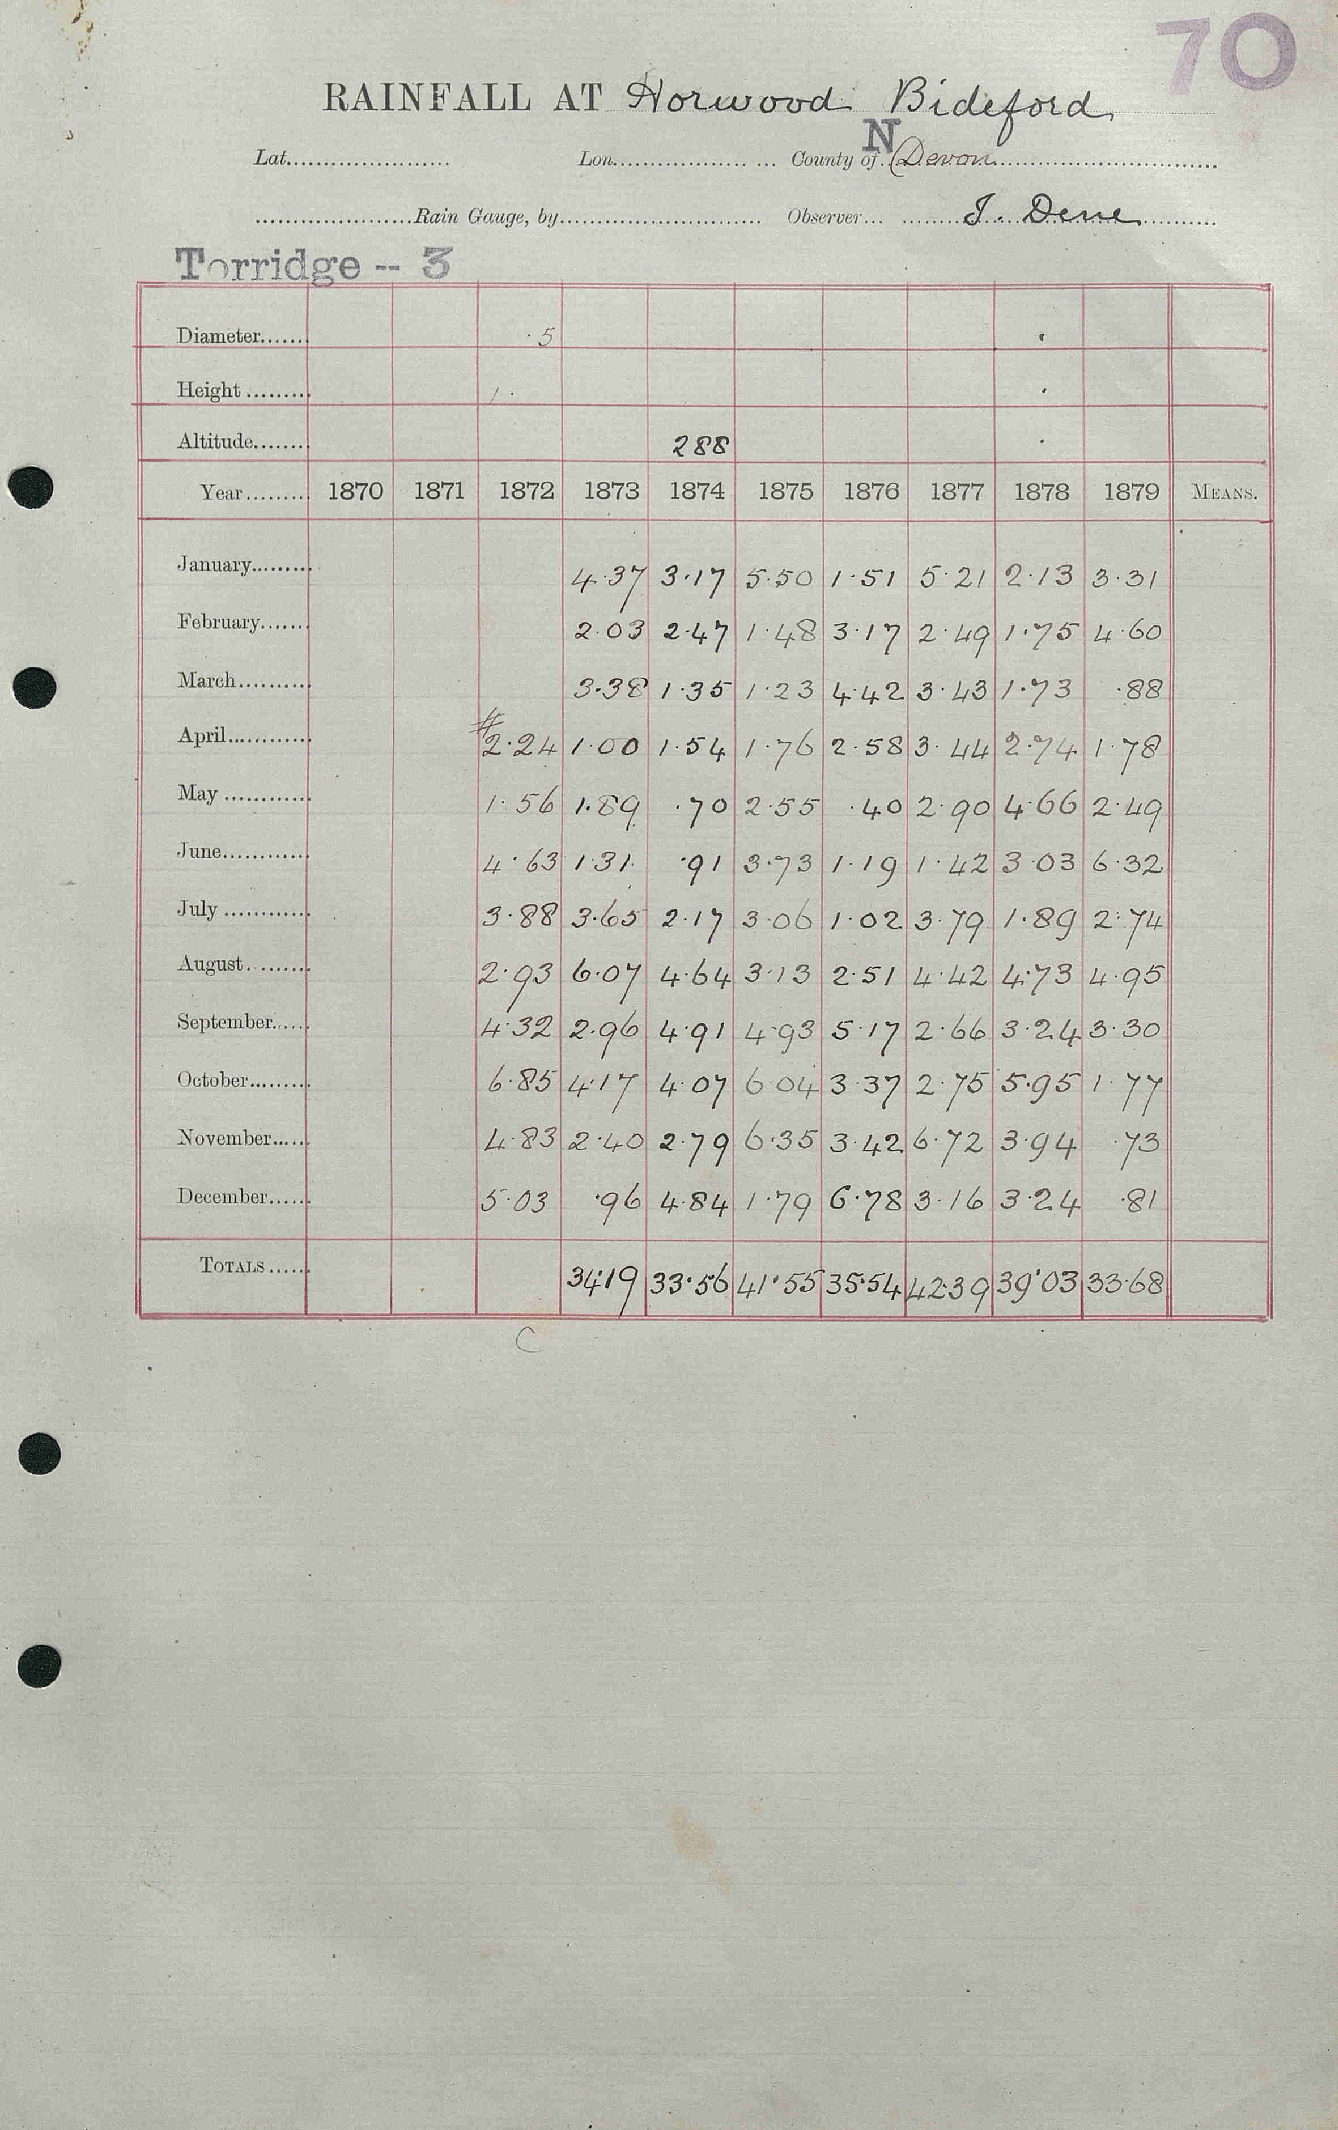 70
RAINFALL AT Horwood Bideford
N
Lat...................... Lon...................... County of Devon
......................Rain Gauge, by............................ Observer... J. Dene
Torridge -- 3
Diameter...... 5
Height......... 1
Altitude....... 288
Year........ 1870 1871 1872 1873 1874 1875 1876 1877 1878 1879 MEANS.
January......... 4.37 3.17 5.50 1.51 5.21 2.13 3.31
February...... 2.03 2.47 1.48 3.17 2.49 1.75 4.60
March.......... 3.38 1.35 1.23 4.42 3.43 1.73 .88
April............ #2.24 1.00 1.54 1.76 2.58 3.44 2.74 1.78
May ............ 1.56 1.89 .70 2.55 .40 2.90 4.66 2.49
June............ 4.63 1.31 .91 3.73 1.19 1.42 3.03 6.32
July ............ 3.88 3.65 2.17 3.06 1.02 3.79 1.89 2.74
August......... 2.93 6.07 4.64 3.13 2.51 4.42 4.73 4.95
September..... 4.32 2.96 4.91 4.93 5.17 2.66 3.24 3.30
October......... 6.85 4.17 4.07 6.04 3.37 2.75 5.95 1.77
November...... 4.83 2.40 2.79 6.35 3.42 6.72 3.94 .73
December...... 5.03 .96 4.84 1.79 6.78 3.16 3.24 .81
TOTALS...... 34.19 33.56 41.55 35.54 42.39 39.03 33.68
C